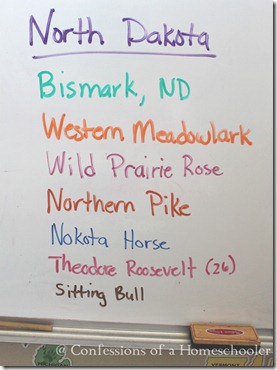 North Dakota
Bismark, ND
Western Meadowlark
Wild Prairie Rose
Northern Pike
Nokota Horse
Theodore Roosevelt (26)
Sitting Bull
@ Confessions of a Homeschooler